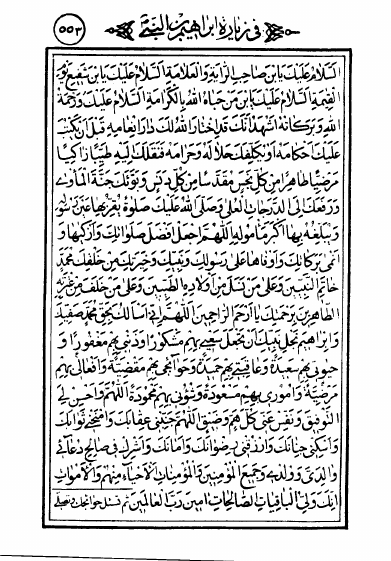 في زيارة ابراهيم بن النبي ٥٥٣
السلام عليك يابن صاحب الراية والعلامة السلام عليك يابن شفيع يوم
القيمة السلام عليك يابن من حباه الله بالكرامة السلام عليك ورحمة
الله وبركاته اشهد انك قد اختار الله لك دار انعامه قبل ان يكتب
عليك احكامه او يكلفك حلاله وحرامه فنقلك اليه طيبا زاكيا
مرضيا طاهرا من كل نجس مقدسا من كل دنس وبوئك جنة الماوى
ورفعك الى الدرجات العلى وصلى الله عليك صلوة يقر بها عين رسوله
ويبلغه بها اكبر مأموله اللهم اجعل افضل صلواتك وازكيها و
انمى بركاتك واوفاها على رسولك ونبيك وخيرتك من خلقك محمد
خاتم النبيين وعلى من نسل من اولاده الطيبين وعلى من خلف من عترته
الطاهرين برحمتك يا ارحم الراحمين اللهم اني اسالك بحق محمد صفيك
وابراهيم نجل نبيك ان تجعل سعيي بهم مشكورا وذنبي بهم مغفورا و
حيوتي بهم سعيدة وعاقبتي بهم حميدة وحوائجي بهم مقضية وافعالي بهم
مرضية واموري بهم مسعودة وشؤني بهم محمودة اللهم واحسن لي
التوفيق ونفس عني كل هم وضيق اللهم جنبني عقابك وامنحني ثوابك
واسكني جنانك وارزقني رضوانك وامانك واشرك في صالح دعائي
والدي وولدي وجميع المؤمنين والمؤمنات الاحياء منهم والاموات
انك ولي الباقيات الصالحات امين رب العالمين ثم تسئل حوائجك وتصلي